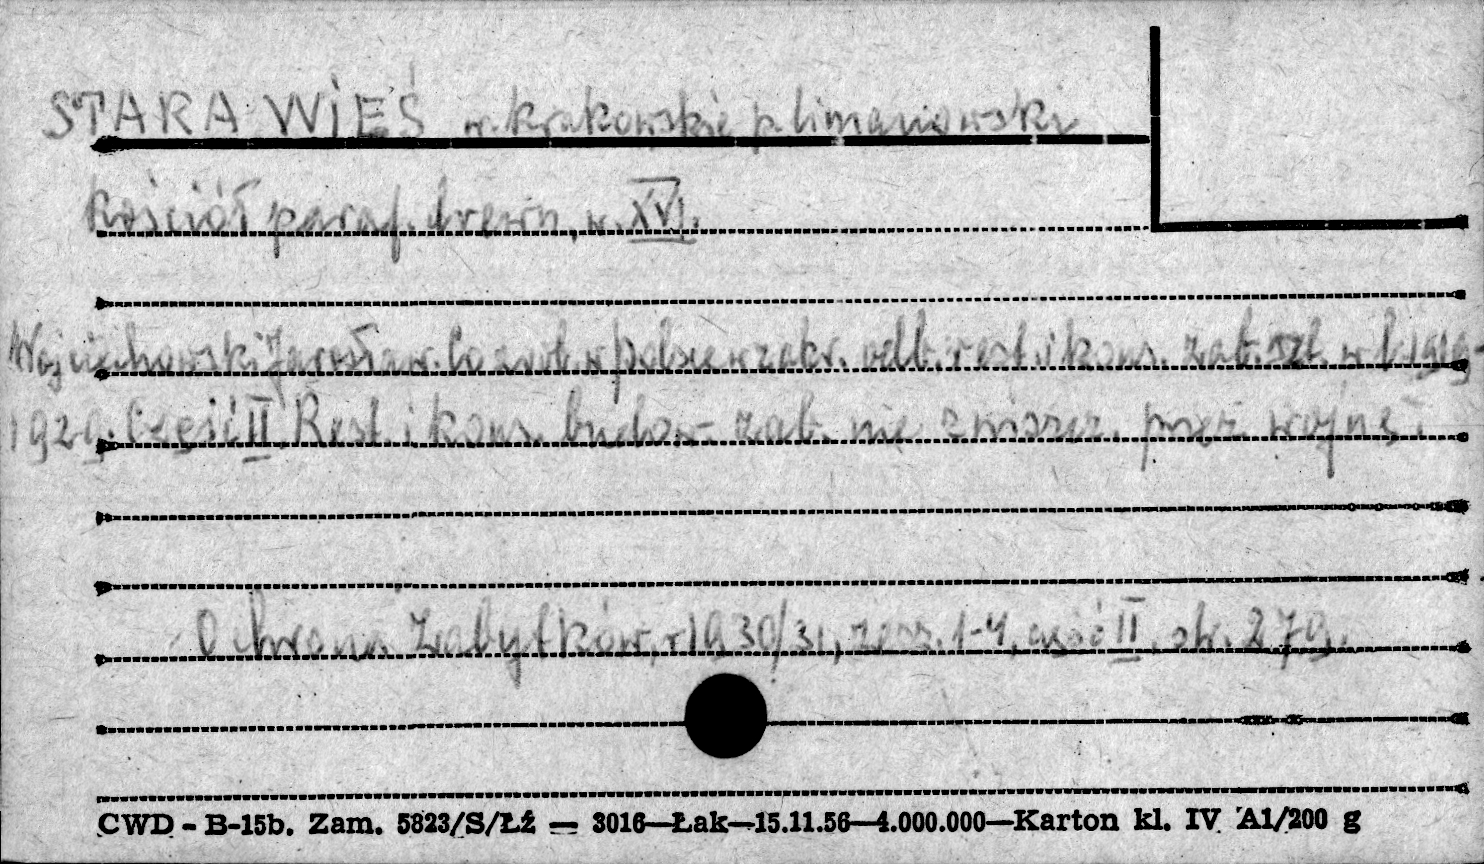 STARA WIEŚ w. krakowskie p. limanowski
Kościół paraf. drewn., w. XVI.
Wojciechowski Jarosław. Co zrob. w Polsce w zakr. odb. rest. i kons. zab. szt. w l. 1919-
1929. Część II Rest. i kons. budow. zab. nie zniszcz. przez wojnę.
Ochrona Zabytków, r. 1930/31, zesz. 1-4, część II, str. 279.
CWD - B-15b. Zam. 5823/S/ŁŹ — 3016—Łak—15.11.56—4.000.000—Karton kl. IV A1/200 g